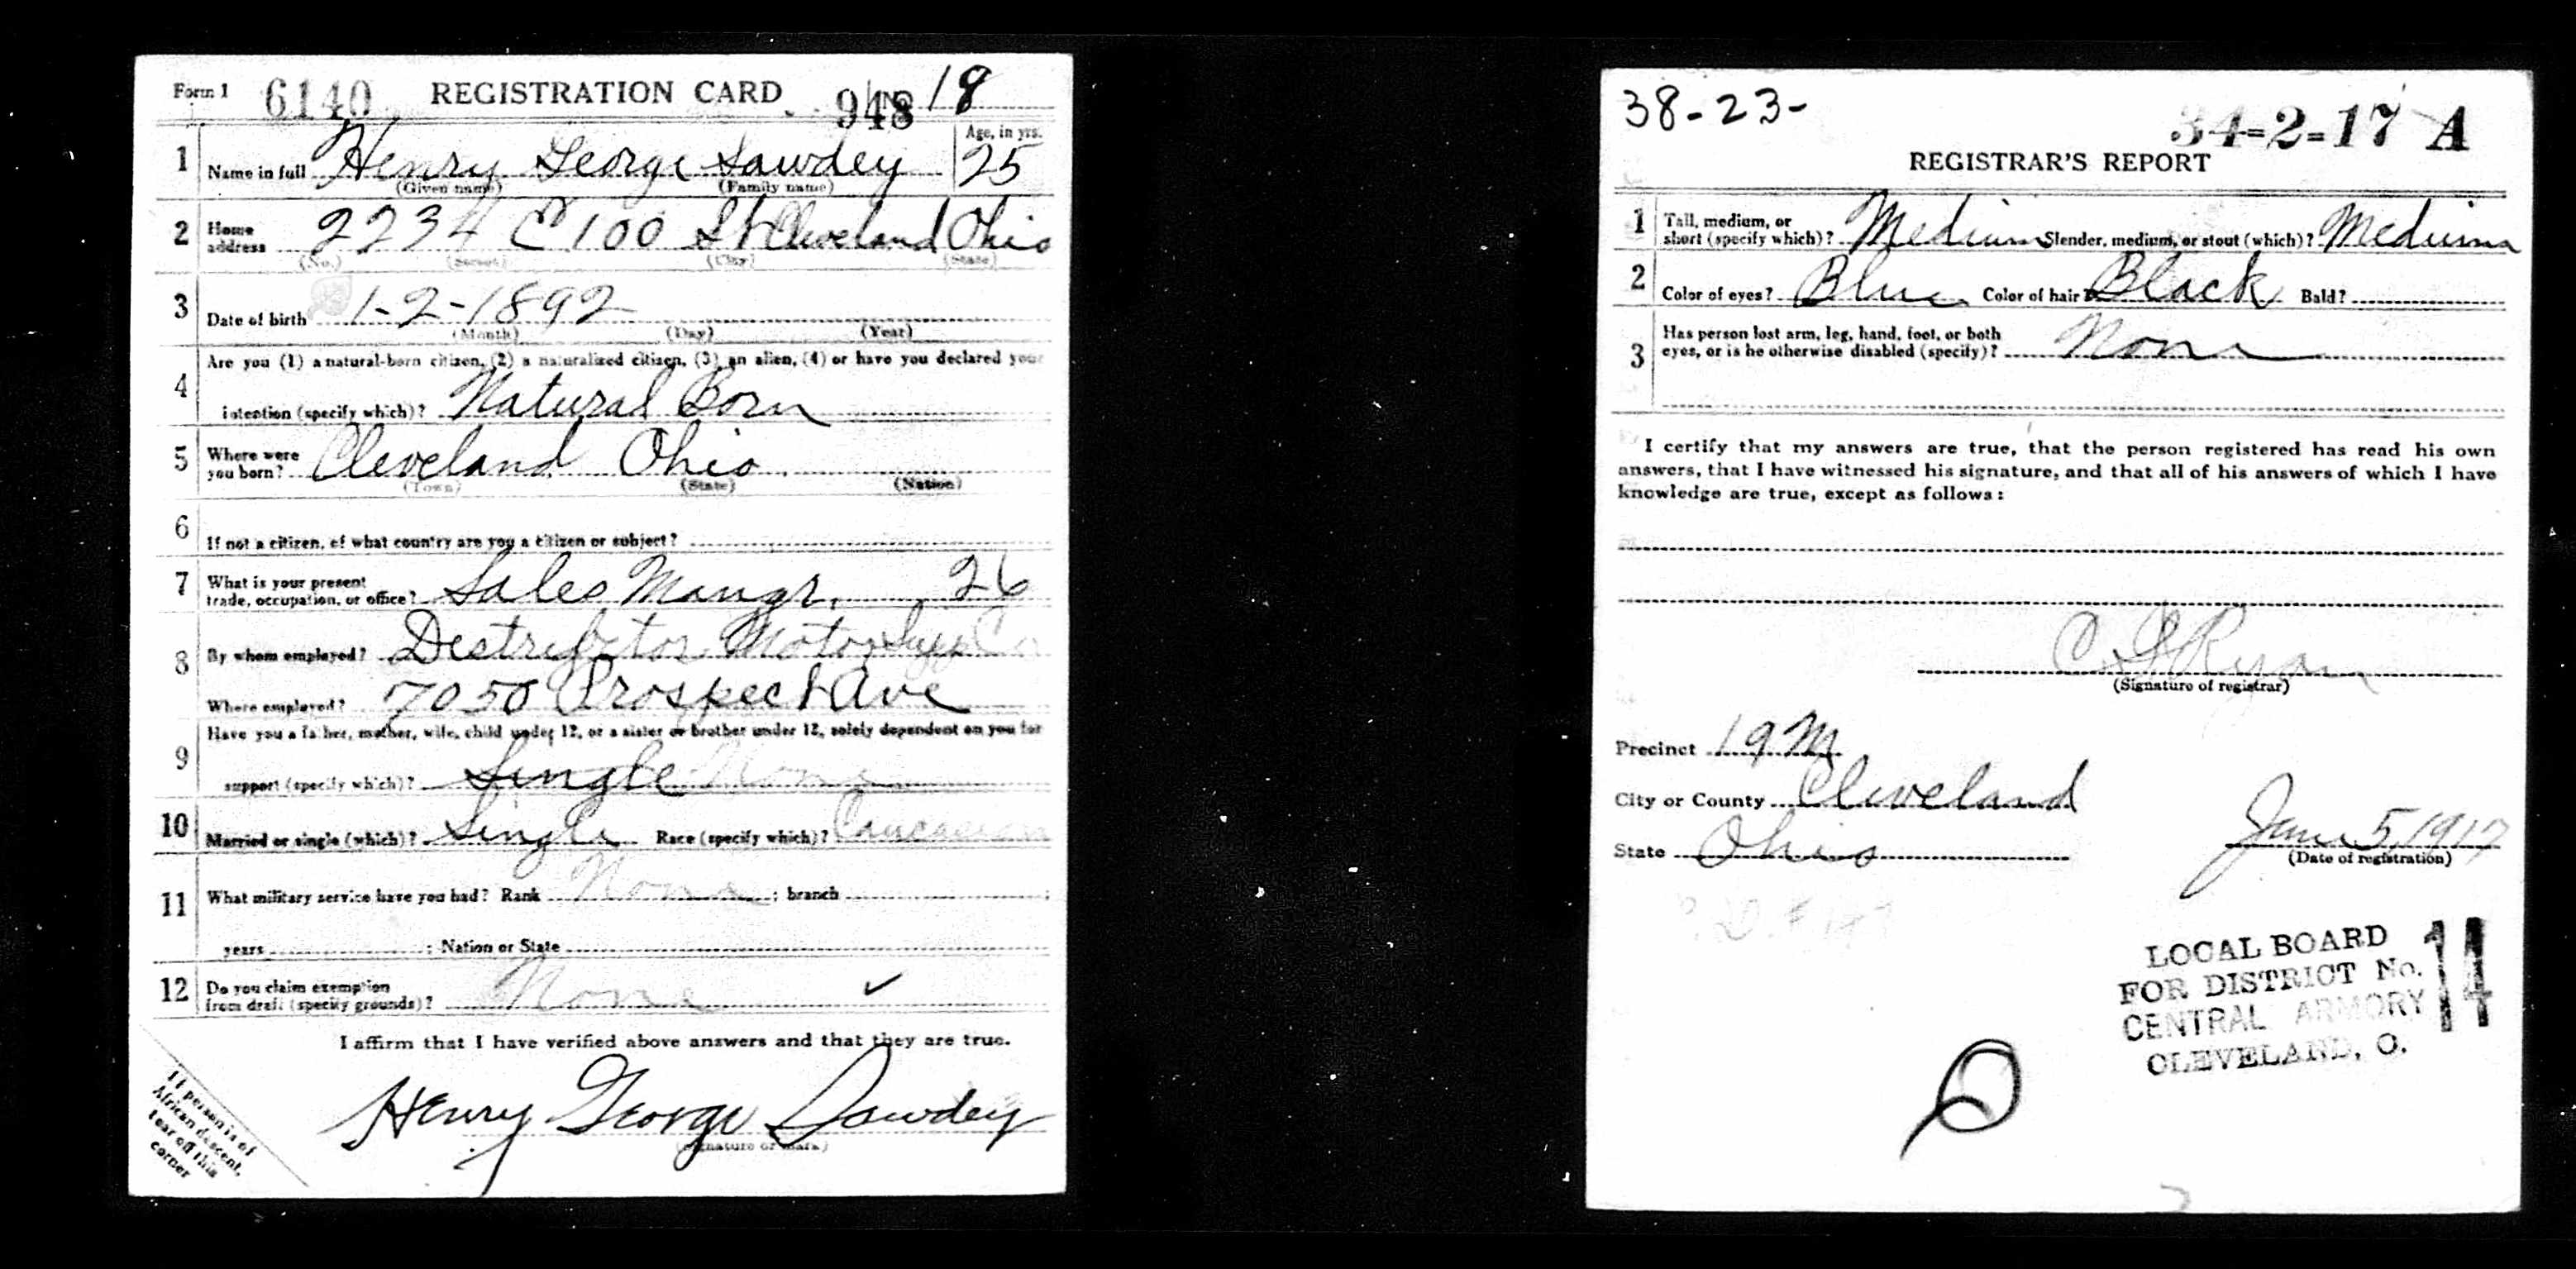 Form 1 6140 REGISTRATION CARD 948 No 18
1 Name in full Henry George Sawdey Age, in yrs. 25
(Given name) (Family name)
2 Home address 2234 E 100 St Cleveland Ohio
(No.) (Street) (City) (State)
3 Date of birth 1-2-1892
(Month) (Day) (Year)
4 Are you (1) a natural-born citizen, (2) a naturalized citizen, (3) an alien, (4) or have you declared your
intention (specify which)? Natural Born
5 Where were you born? Cleveland Ohio
(Town) (State) (Nation)
6 If not a citizen, of what country are you a citizen or subject?
7 What is your present trade, occupation, or office? Sales Mangr. 26
8 By whom employed? Co
Where employed? 7050 Prospect Ave
9 Have you a father, mother, wife, child under 12, or a sister or brother under 12, solely dependent on you for
support (specify which)? Single None
10 Married or single (which)? Single Race (specify which)? Caucasian
11 What military service have you had? Rank None ; branch ;
years ; Nation or State
12 Do you claim exemption from draft (specify grounds)? None ✓
I affirm that I have verified above answers and that they are true.
Henry George Sawdey
(Signature or mark)
If person is of
African descent,
tear off this
corner
38-23-
34-2-17 A
REGISTRAR'S REPORT
1 Tall, medium, or short (specify which)? Medium Slender, medium, or stout (which)? Medium
2 Color of eyes? Blue Color of hair? Black Bald?
3 Has person lost arm, leg, hand, foot, or both
eyes, or is he otherwise disabled (specify)? None
I certify that my answers are true, that the person registered has read his own
answers, that I have witnessed his signature, and that all of his answers of which I have
knowledge are true, except as follows:
C Ryan
(Signature of registrar)
Precinct 19 M
City or County Cleveland
State Ohio
June 5, 1917
(Date of registration)
LOCAL BOARD
FOR DISTRICT No. 14
CENTRAL ARMORY
CLEVELAND, O.